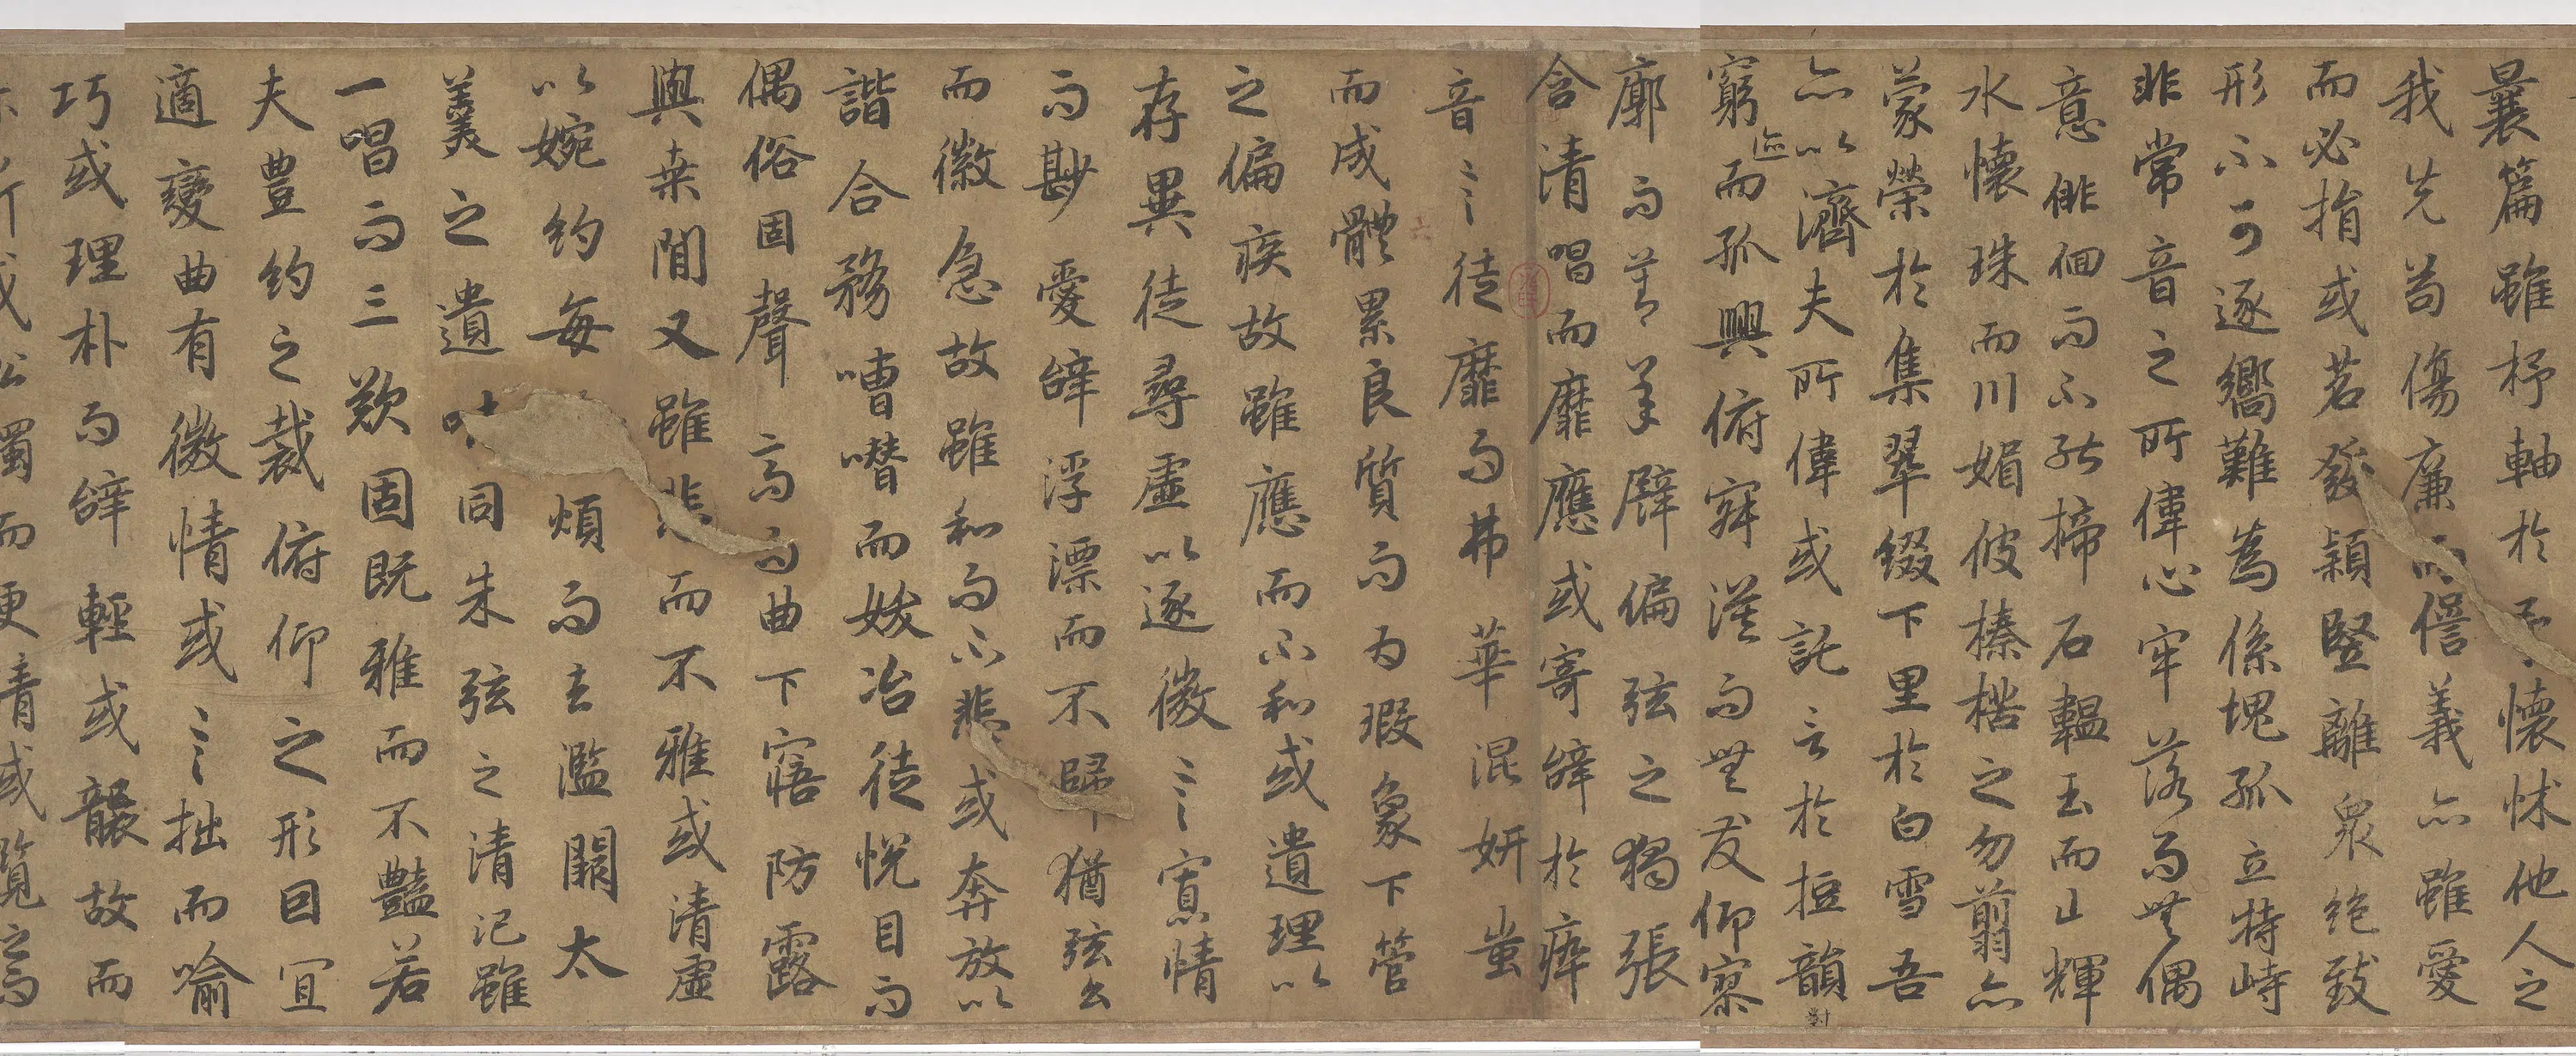 曩篇雖杼軸於予懷怵他人之
我先苟傷廉而愆義亦雖愛
而必捐或苕發穎竪離衆絶致
形不可逐嚮難為係塊孤立特峙
非常音之所偉心牢落而無偶
意俳佪而不能揥石韞玉而山輝
水懷珠而川媚彼榛楛之勿翦亦
蒙榮於集翠綴下里於白雪吾
亦以濟夫所偉或託言於短韻對
窮迹而孤興俯寂漠而無友仰寥
廓而莫承譬偏弦之獨張
含清唱而靡應或寄辭於瘁
音〻徒靡而弗華混妍蚩
而成體累良質而為瑕象下管
之偏疾故雖應而不和或遺理以
存異徒尋虛以逐微〻寡情
而尠愛辭浮漂而不歸猶弦么
而徽急故雖和而不悲或奔放以
諧合務嘈囋而妖冶徒悅目而
偶俗固聲高而曲下寤防露
與桑閒又雖悲而不雅或清虛
以婉約每煩而去濫闕太
羹之遺味同朱弦之清汜雖
一唱而三歎固既雅而不豔若
夫豊約之裁俯仰之形因宜
適變曲有微情或〻拙而喻
巧或理朴而辭輕或襲故而
濁而更清或覽之焉